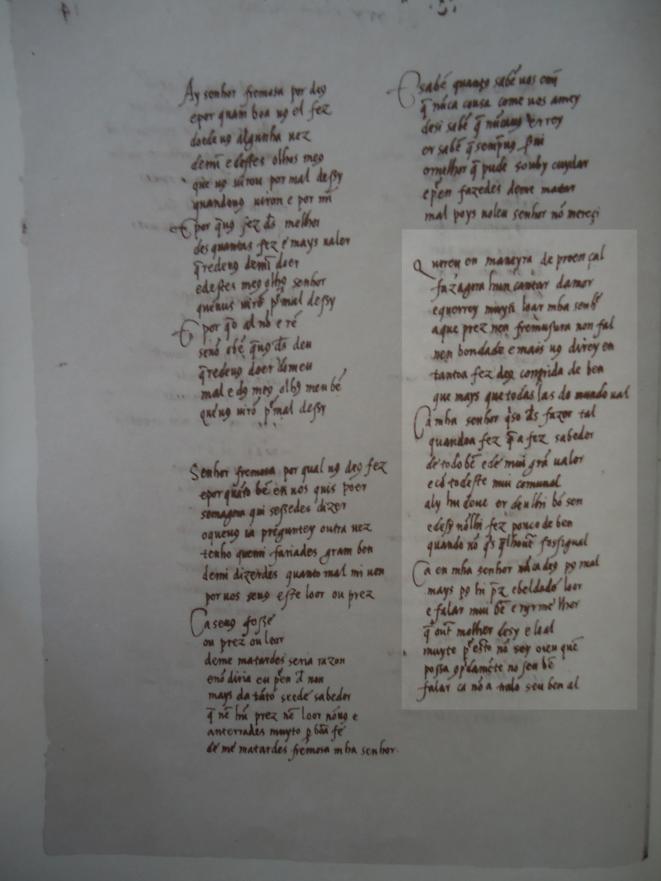 Ay senhor fremosa por deg
e por quam boa ug el fez
doede ug algunha vez
demĩ e destes olhos meg
que ug virou por mal dessy
quandoug viron e por mĩ
E por q̃ug fez d̃s melhor
de quantas fez e mays valor
q̃redeug demĩ doer
e destes meg olhg senhor
quenus virõ p̃ mal dessy
E por q̃o al nõ e rẽ
senõ obẽ q̃ug d̃s deu
q̃redeug doer domeu
mal e dg meg olhg meu bẽ
quẽug virõ p̃ mal dessy
Senhor fremosa por qual ug deg fez
e por quãto bẽ en uos quis poer
se magora quisessedes dizer
o queug ia preguntey outra uez
tenho quemi fariades gram ben
demi dizerdes quanto mal mi uen
por uos seug este loor ou prez
Ca seug fosse
ou prez ou loor
deme matardes seria razon
e nõ diria eu p̃en d̃ non
mays datãtõ seede sabedor
q̃ nẽ hũ prez nẽ loor nõug e
ante errades muyto p̃ bõa fe
de me matardes fremosa mha senhor
E sabẽ quamg sabẽ uos en mĩ
q̃ nũca cousa come uos amey
desi sabẽ q̃ nũcaug errey
er sabẽ q̃ sempug seruj
o melhor q̃ pude souby cuydar
e p̃en fazedes deme matar
mal poys uoleu senhor nõ mereçi
Quereu en maneyra de proençal
fazagora hun cantar damor
e querrey muyti loar mha senhõr
a que prez nen fremusura non fal
nen bondade e mais ug direy en
tanto a fez deg comprida de ben
que mays que todas las do mundo ual
Ca mha senhor q̃so d̃s fazer tal
quandoa fez q̃ a fez sabedor
de todo bẽ e de mui grã ualor
e cõ todeste mui comunal
aly hu deue er deulhi bõ sen
e desy nõlhi fez pouco de ben
quando nõ q̃s q̃lhoutr̃ fossigual
Ca en mha senhor nũca deg pg mal
mays pg hi p̃z e beldade loor
e falar mui bẽ e rijr melhor
q̃ outr̃ molher desy e leal
muyto p̃ esto nõ sey oieu quẽ
possa cõpridamẽte no seu bẽ
falar ca nõ a tralo seu ben al